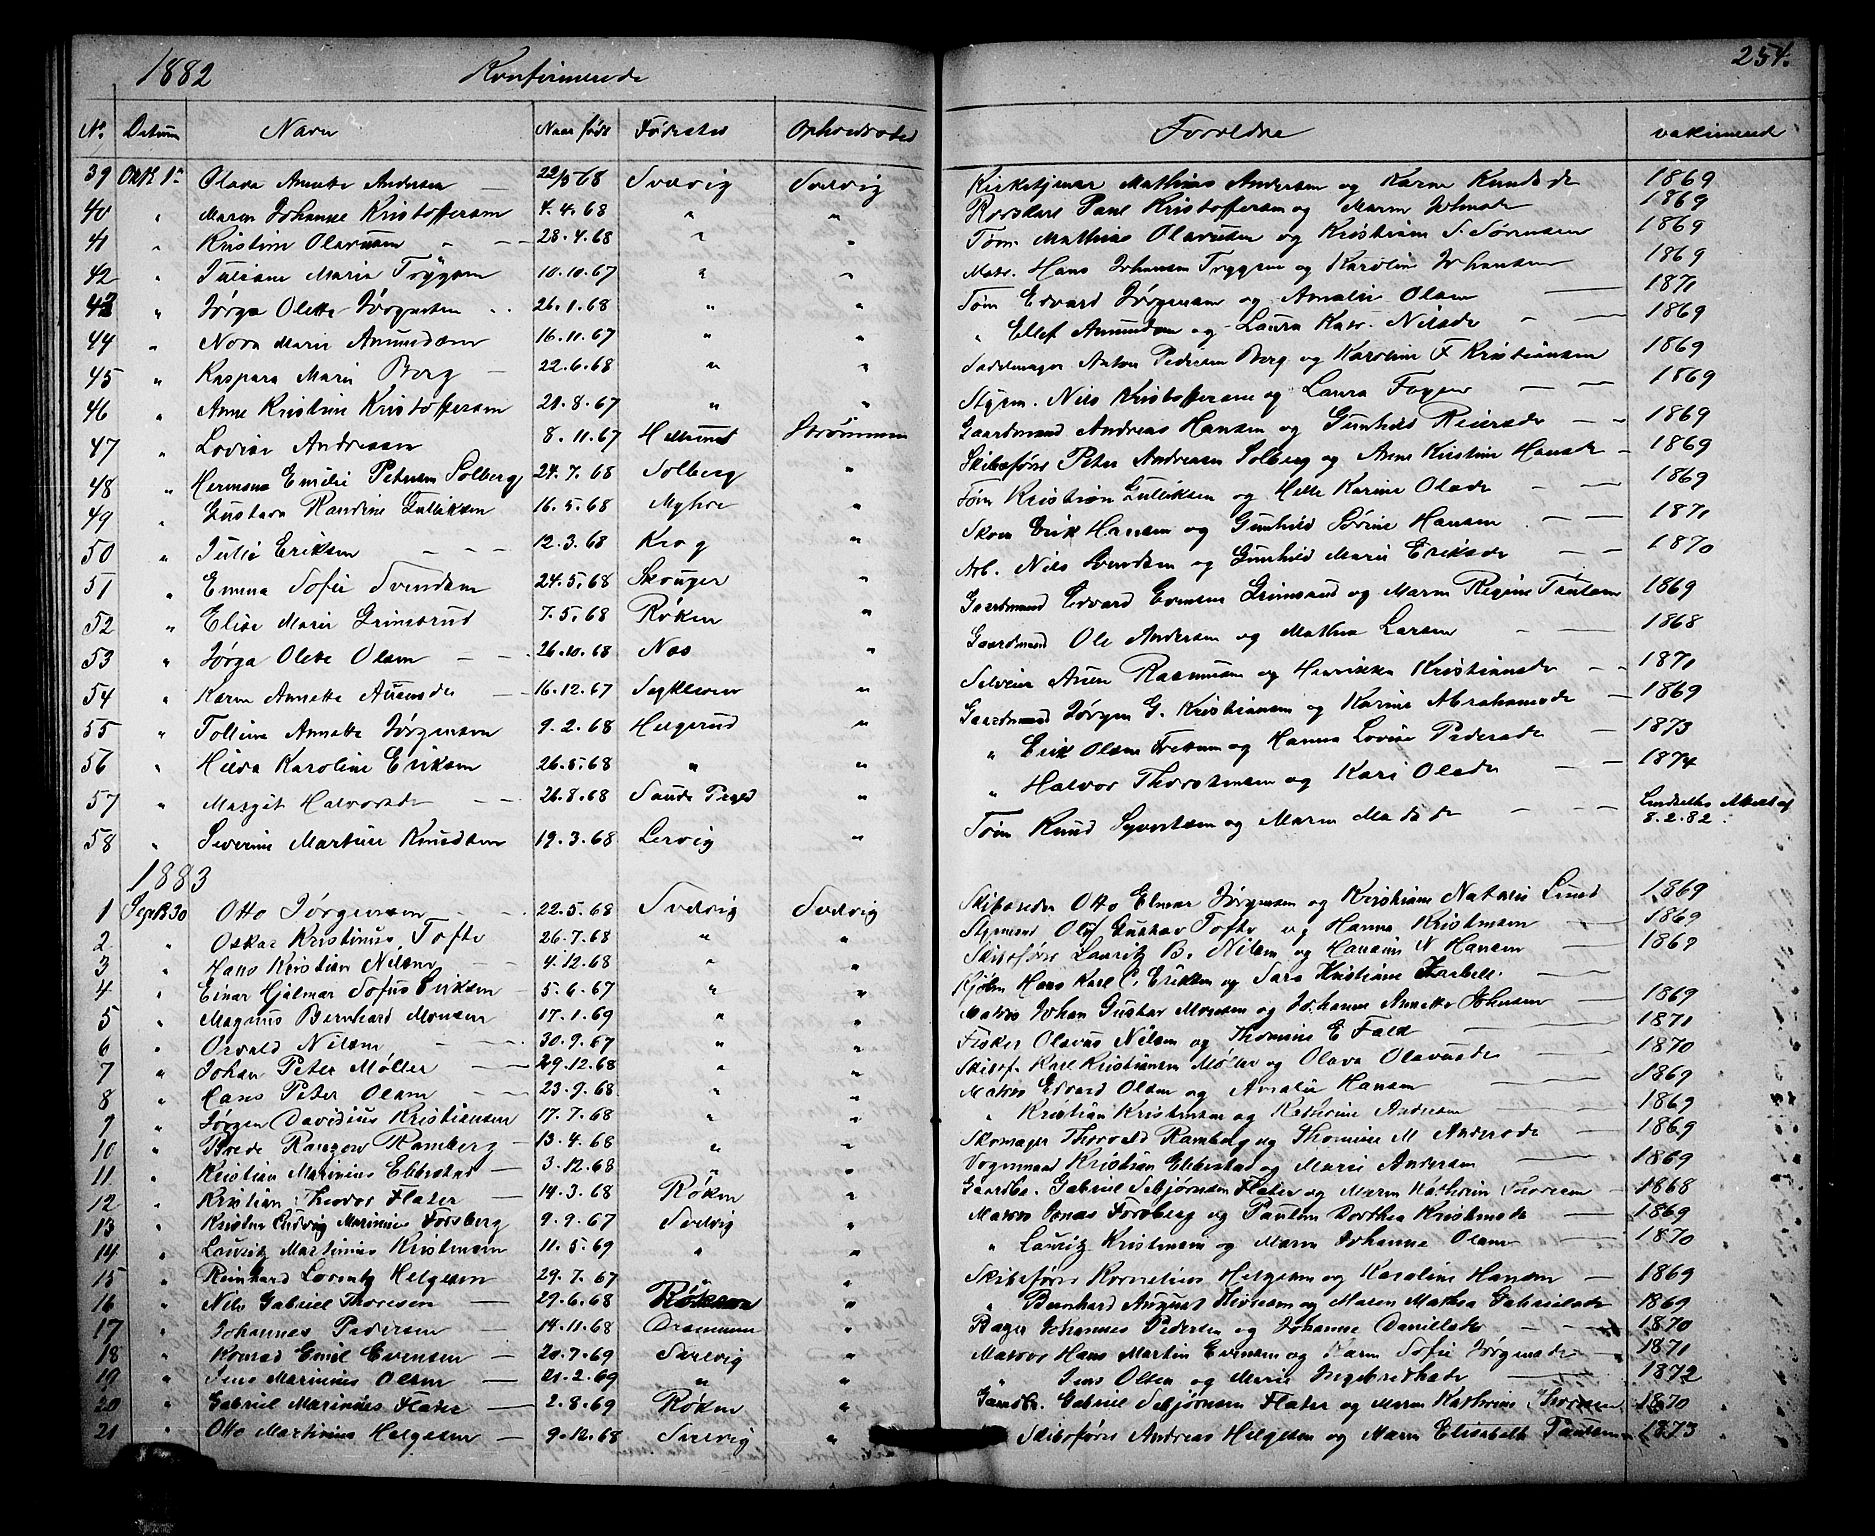 1882 Konfirmerede 254.
No. Datum Navn Naar født Fødested Opholdssted Forældre vaksinerede
39 Okt 1ste Olava Annette Andersen — 22/5 68 Svelvig Svelvig Kirketjener Mathias Andersen og Karen Knudsdr 1869
40 " Maren Johanne Kristoffersen 4.4.68 " " Paul Kristoffersen og Maren Johnsdr 1869
41 " Kristine Olavesen - -- 28.4.68 " " Tøm. Mathias Olavesen og Kristiane S. Sørensen 1869
42 " Juliane Marie Tryggsen 10.10.67 " " Matr. Hans Johansen Tryggsen og Karoline Johansen 1869
43 " Jørga Olette Jørgensen .. 26.1.68 " " Tøm Edvard Jørgensen og Amalie Olsen — 1871
44 " Nora Marie Amundsen 16.11.67 " " " Ellef Amundsen og Laura Katr. Nilsdr - — 1869
45 " Kaspara Marie Borg — 22.6.68 " " Sadelmager Anton Pedersen Borg og Karoline F Kristiansen 1869
46 " Anne Kristine Kristoffersen 21.8.67 " " Styrm. Nils Kristoffersen og Laura — — 1869
47 " Lovise Andresen 8.11.67 Strømmen Gaardmand Andreas Hansen og Gunhild Reiersdr — - 1869
48 " Hermana Emilie Petersen Solberg 24.7.68 Solberg " Skibsfører Peter Andresen Solberg og Anne Kristine Hansdr - 1869
49 " Gustava Randine Gulliksen 16.5.68 Myhre " Tøm Kristian Gulliksen og Helle Karine Olsdr - — 1869
50 " Julie Eriksen - - - 12.3.68 Krog " Skom Erik Hansen og Gunhild Sørine Hansen - — 1871
51 " Emma Sofie Svendsen 24.5.68 Skouger " Arb. Nils Svendsen og Gunhild Marie Eriksdr — — 1870
52 " Elise Marie Grimsrud 7.5.68 Røken " Gaardmand Edvard Evensen Grimsrud og Maren Regine Paulsen 1869
53 " Jørga Olette Olsen - - 26.10.68 Næs " Gaardmand Ole Andersen og Mathea Larsen - — 1868
54 " Karen Annette Ausensdr - 16.12.67 " Selveier Ausen Rasmussen og Henrikka Kristiansdr - - 1871
55 " Tolline Annette Jørgensen 9.2.68 Helgerud " Gaardmand Jørgen G. Kristiansen og Karine Abrahamsdr — 1869
56 " Hilda Karoline Eriksen 26.5.68 " " " Erik Olsen Tretum og Hanna Lovise Pedersdr — 1873
57 " Margit Halvorsdr - - 26.8.68 Sande " " Halvor Thorstensen og Kari Olsdr — — 1874
58 " Severine Martine Knudsen 19.3.68 Lervig " Tøm Knud Syvertsen og Maren Madsdr - — — Lindseths Attest af 8.2.82.
1883
1 Septb 30 Otto Jørgensen - - 22.5.68 Svelvig Svelvig Skibsreder Otto Elmar Jørgensen og Kristiane Natalie Lund 1869
2 " Oskar Kristinus Tofte 26.7.68 " " Styrmand Olof Gustav Tofte og Hanna Kristensen — 1869
3 " Hans Kristian Nilsen - 4.12.68 " " Skibsfører Lauritz B. Nilsen og Hansine N Hansen — 1869
4 " Einar Hjalmar Sofus Eriksen - 5.6.67 " " Kjøbm Hans Karl C. Eriksen og Sara Kristiane —
5 " Magnus Bernhard Monsen 17.1.69 " " Matros Johan Gustav Monsen og Johanne Annette Johnsen — 1869
6 " Osvald Nilsen - — 30.9.67 " " Fisker Olavus Nilsen og Thomine E Falck — — 1871
7 " Johan Peter Møller — - 29.12.68 " " Skibsf. Karl Kristiansen Møller og Olava Olavusdr — 1870
8 " Hans Peter Olsen — - 23.9.68 " " Matros Edvard Olsen og Amalie Hansen — — 1869
9 " Jørgen Davidius Kristiansen 17.7.68 " " " Kristian Kristensen og Kathrine Andersen — 1869
10 " Brede Rangow Ramberg — 13.4.68 " " Skomager Thorvald Ramberg og Thomine M Andersdr — 1869
11 " Kristian Marinius Ebbestad — 3.12.68 " " Vognmand Kristian Ebbestad og Marie Andersen — 1869
12 " Kristian Theodor Flater — 14.3.68 Røken " Gaardbr. Gabriel Asbjørnsen Flater og Maren Kathrine Thoresen — 1868
13 " Kristen Ludvig Marinius Forsberg 9.9.67 Svelvig " Matros Jonas Forsberg og Pauline Dorthea Kristensdr — 1869
14 " Lauritz Martinius Kristensen 11.5.69 " " " Lauritz Kristensen og Maren Johanne Olsen — 1870
15 " Reinhard Lorentz Helgesen 29.7.67 " Skibsfører Kornelius Helgesen og Karoline Hansen — 1869
16 " Nils Gabriel Thoresen — 29.6.68 Røken " " Bernhard August Thoresen og Maren Mathea Gabrielsdr 1869
17 " Johannes Pedersen — 14.11.68 Drammen " Bager Johannes Pedersen og Johanne Danielsdr — 1870
18 " Konrad Emil Evensen — 20.7.69 Svelvig " Matros Hans Martin Evensen og Maren Sofie Jørgensdr - 1871
19 " Jens Marinius Olsen — 21.2.69 " " " Jens Olsen og Marie Ingebrethsdr — — 1872
20 " Gabriel Marinius Flater — 2.8.69 Røken " Gaardbr. Gabriel Asbjørnsen Flater og Maren Kathrine Thoresen 1870
21 " Otto Martinius Helgesen — 9.12.68 Svelvig " Skibsfører Andreas Helgesen og Maren Elisabeth Paulsen 1873